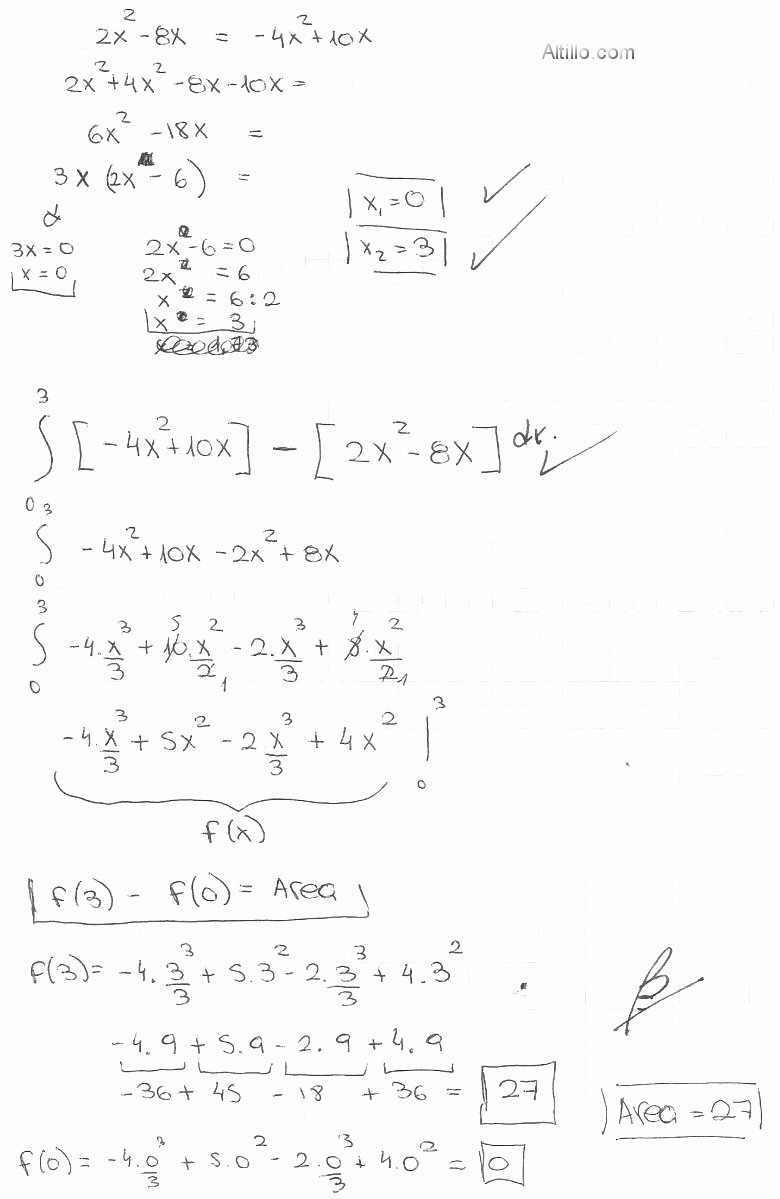 2x² - 8x = -4x² + 10x
Altillo.com
2x² + 4x² - 8x - 10x =
6x² - 18x =
3x (2x - 6) =
x₁ = 0
x₂ = 3
3x = 0
x = 0
2x - 6 = 0
2x = 6
x = 6 : 2
x = 3
∫₀³ [-4x² + 10x] - [2x² - 8x] dx.
∫₀³ -4x² + 10x - 2x² + 8x
∫₀³ -4.x³/3 + 10.x²/2 - 2.x³/3 + 8.x²/2
-4.x³/3 + 5x² - 2x³/3 + 4x² |₀³
f(x)
f(3) - f(0) = Area
f(3) = -4.3³/3 + 5.3² - 2.3³/3 + 4.3²
-4.9 + 5.9 - 2.9 + 4.9
-36 + 45 - 18 + 36 = 27
Area = 27
f(0) = -4.0³/3 + 5.0² - 2.0³/3 + 4.0² = 0